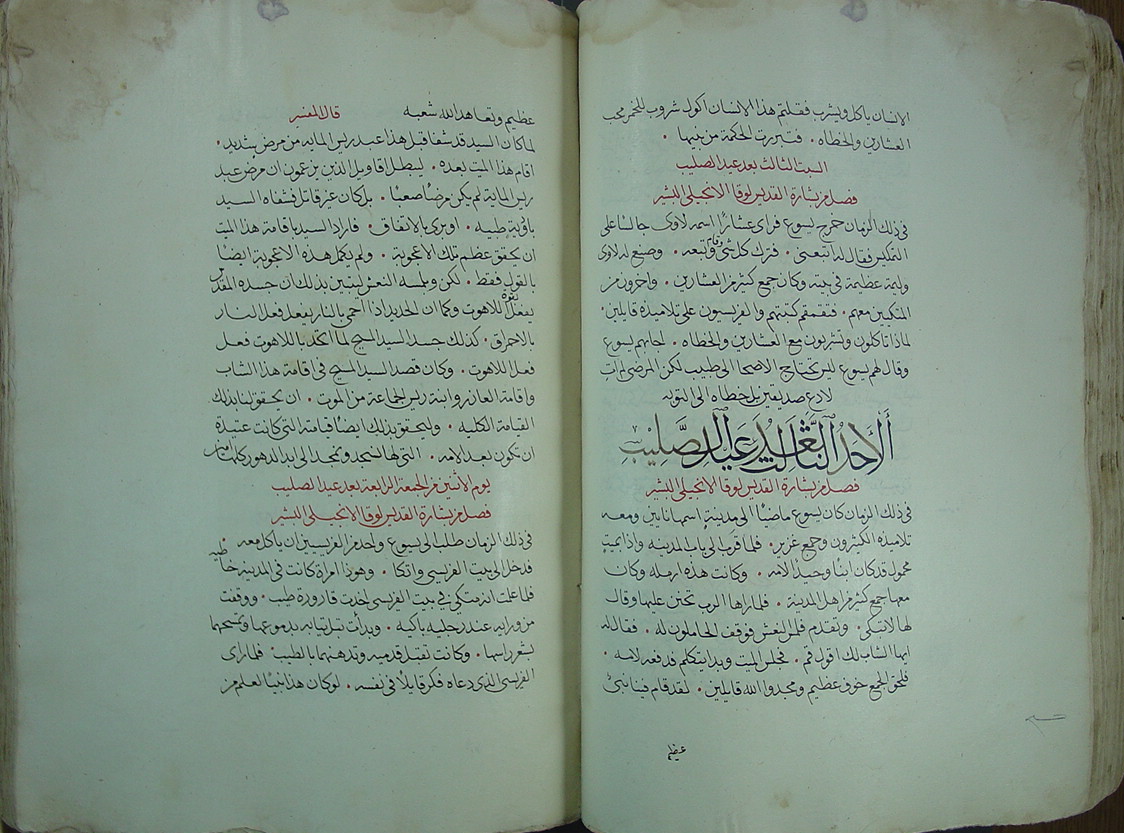 الانسان ياكل ويشرب فقلتم هذا الانسان اكول شروب للخمر محب
العشارين والخطاه . فتبررت الحكمة من بنيها .
السبت الثالث بعد عيد الصليب
فصل من بشارة القديس لوقا الانجيلي البشير
في ذلك الزمان خرج يسوع فراى عشارًا اسمه لاوى جالسًا على
التمكيس فقال له اتبعني . فترك كل شي وقام وتبعه . وصنع له لاوى
وليمة عظيمة في بيته وكان جمع كثير من العشارين . واخرون من
المتكيين معهم . فتقمقم كتبتهم والفرسيون على تلاميذه قايلين .
لماذا تاكلون وتشربون مع العشارين والخطاه . اجابهم يسوع
وقال لهم يسوع ليس تحتاج الاصحا الى طبيب لكن المرضى لم ات
لادع صديقين بل خطاه الى التوبه
الأحد الثالث بعد عيد الصليب
فصل من بشارة القديس لوقا الانجيلي البشير
في ذلك الزمان كان يسوع ماضيًا الى مدينة اسمها نايين ومعه
تلاميذه الكثيرون وجمع غزير . فلما قرب الى باب المدينه واذا بميت
محمول قد كان ابنًا وحيدًا لامه . وكانت هذه ارمله وكان
معها جمع كثير من اهل المدينة . فلما راها الرب تحنن عليها وقال
لها لا تبكي . وتقدم فلمس النعش فوقف الحاملون له . فقال له
ايها الشاب لك اقول قم . فجلس الميت وبدا يتكلم فدفعه لامه .
فلحق الجمع خوف عظيم ومجدوا الله قايلين . لقد قام فينا نبيٌ
عظيم
عظيم وتعاهد الله شعبه قال المفسر
لما كان السيد قد شفا قبل هذا عبد ريس المايه من مرض شديد .
اقام هذا الميت بعده . ليبطل اقاويل الذين يزعمون ان مرض عبد
ريس الماية لم يكن مرضًا صعبًا . بل كان غير قاتل فشفاه السيد
بادوية طبيه . او برى بالاتفاق . فاراد السيد باقامة هذا الميت
ان يحقق عظم تلك الاعجوبة . ولم يكمل هذه الاعجوبة ايضًا
بالقول فقط . لكن وبلمسه النعش ليتبين بذلك ان جسده المقدس
يفعل بقوة اللاهوت وكما ان الحديد اذا احمي بالنار يفعل فعل النار
بالاحراق . كذلك جسد السيد المسيح لما اتحد باللاهوت فعل
فعل اللاهوت . وكان قصد السيد المسيح في اقامة هذا الشاب
واقامة العازر وابنة ريس الجماعة من الموت . ان يحقق لنا بذلك
القيامة الكليه . وليحقق بذلك ايضًا قيامته التي كانت عتيدة
ان تكون بعد الامه . التي لها نسجد ونمجد الى ابد الدهور كلها
يوم الاثنين من الجمعة الرابعة بعد عيد الصليب
فصل من بشارة القديس لوقا الانجيلي البشير
في ذلك الزمان طلب الى يسوع واحد من الفريسيين ان ياكل معه .
فدخل الى بيت الفريسي واتكا . وهوذا امراة كانت في المدينه خاطيه
فلما علمت انه متكي في بيت الفريسي اخذت قارورة طيب . ووقفت
من ورايه عند رجليه باكيه . وبدأت تبل قدميه بدموعها وتمسحهما
بشعر راسها . وكانت تقبل قدميه وتدهنهما بالطيب . فلما راى
الفريسي الذي دعاه فكر قايلاً في نفسه . لو كان هذا نبيًا لعلم من